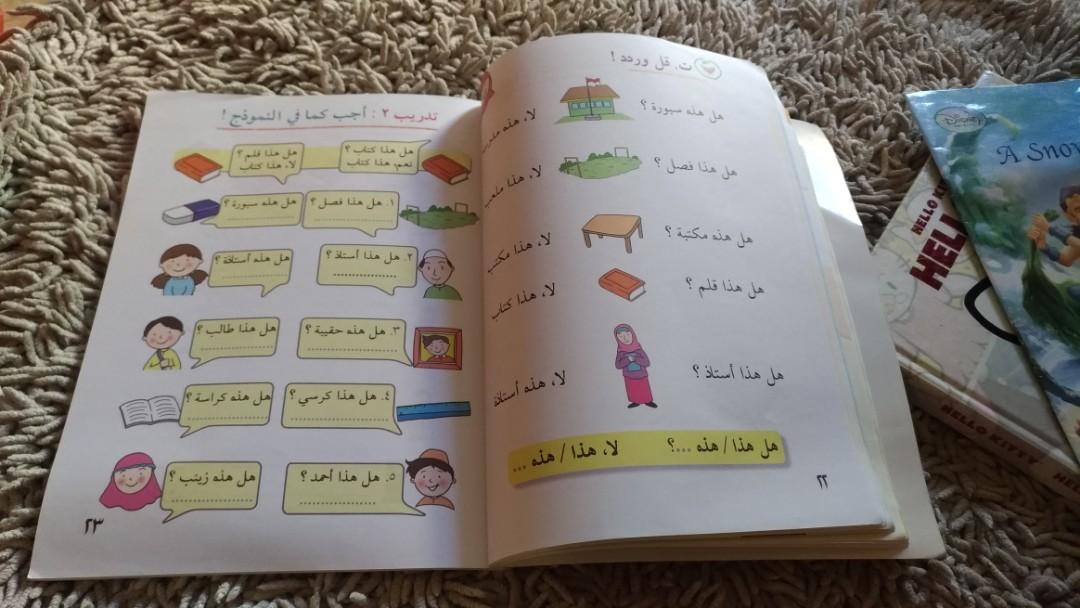 ت. قل وردد !
هل هذه سبورة ؟
لا، هذه
هل هذا فصل ؟
لا، هذا ملعب
هل هذه مكتبة ؟
لا، هذا مكتب
هل هذا قلم ؟
لا، هذا كتاب
هل هذا أستاذ ؟
لا، هذه أستاذة
هل هذا / هذه ...؟
لا، هذا / هذه ...
٢٢
تدريب ٢ : أجب كما في النموذج !
هل هذا كتاب ؟
نعم، هذا كتاب
هل هذا قلم ؟
لا، هذا كتاب
١. هل هذا فصل ؟
هل هذه سبورة ؟
٢. هل هذا أستاذ ؟
هل هذه أستاذة ؟
٣. هل هذه حقيبة ؟
هل هذا طالب ؟
٤. هل هذا كرسي ؟
هل هذه كراسة ؟
٥. هل هذا أحمد ؟
هل هذه زينب ؟
٢٣
DISNEY
A Snow
HELLO
HELL
HELLO KITTY